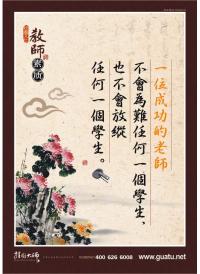 教師
素质
一位成功的老師
不會為難任何一個學生，
也不會放縱
任何一個學生。
挂图大师
400 626 6008
www.guatu.net